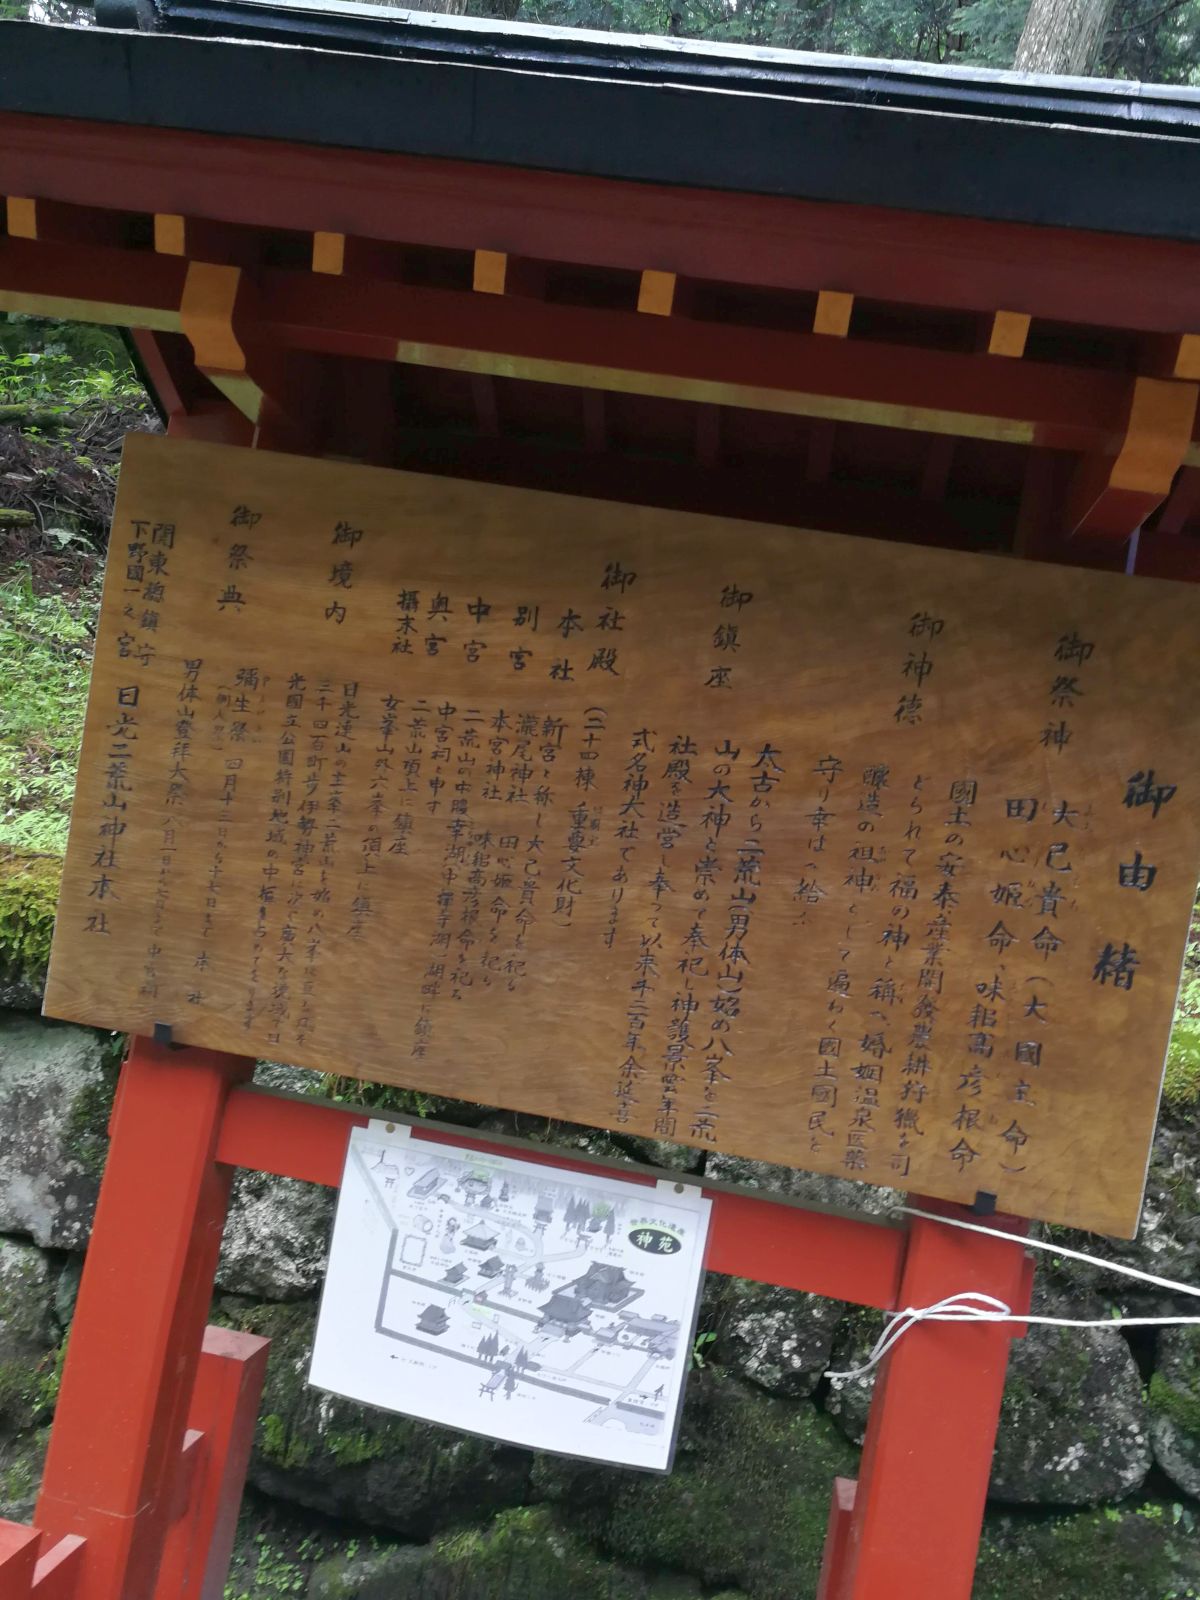 御由緒
御祭神 大己貴命(大國主命)
田心姫命、味耜高彦根命
御神徳 國土の安泰産業開發農耕狩獵を司
どられて福の神と稱へ婚姻温泉医藥
醸造の祖神として遍わく國土國民を
守り幸はへ給ふ
御鎮座 太古から二荒山(男体山)始め八峯を二荒
山の大神と崇めて奉祀し神護景雲年間
社殿を造営し奉つて以来千二百年余延喜
式名神大社であります
御社殿 (二十四棟 重要文化財)
本社 新宮と称し大己貴命を祀る
別宮 瀧尾神社 田心姫命を祀る
本宮神社 味耜高彦根命を祀る
中宮 二荒山の中腹幸湖(中禅寺湖)湖畔に鎮座
中宮祠と申す
奥宮 二荒山頂上に鎮座
攝末社 女峯山外六峯の頂上に鎮座
御境内 日光連山の主峯二荒山を始め八峯に亘る
三千四百町歩伊勢神宮に次ぐ廣大な境域で日
光國立公園特別地域の中枢を占めてをります
御祭典 彌生祭 四月十三日から十七日まで 本社
(例大祭)
男体山登拜大祭 八月一日から七日まで 中宮祠
関東總鎮守
下野國一之宮 日光二荒山神社本社
世界文化遺産
神苑